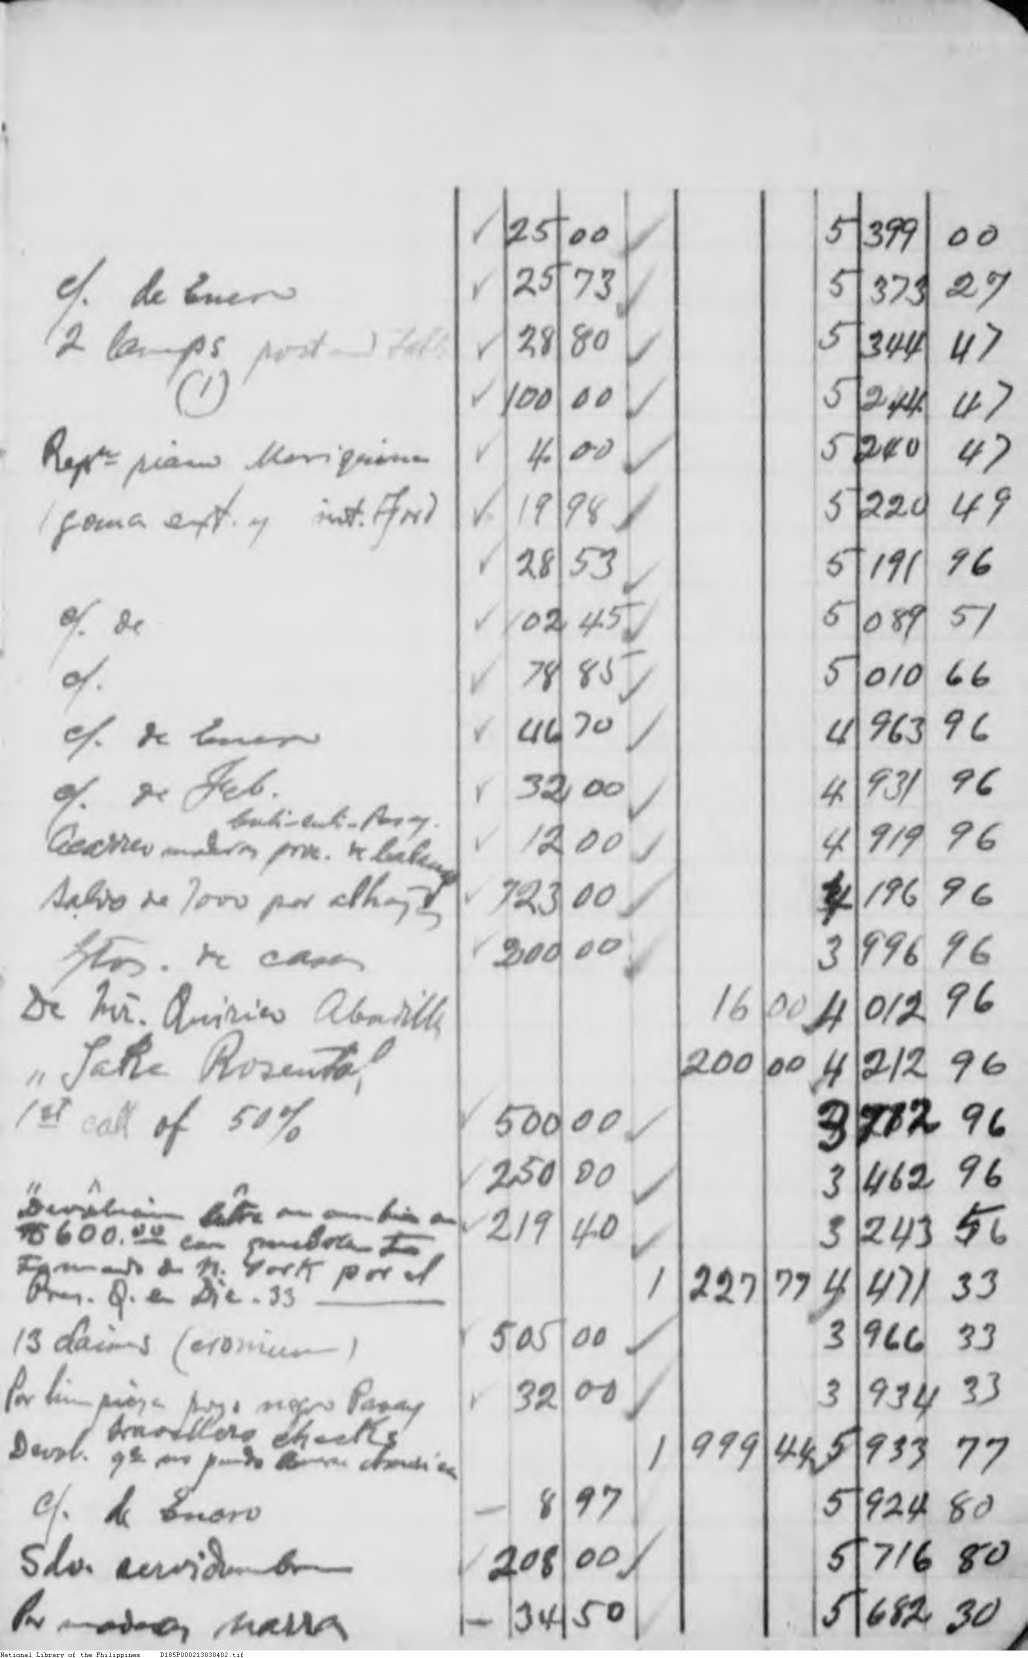 ✓ 25 00 ✓ 5 399 00
c/. de Enero ✓ 25 73 ✓ 5 373 27
2 lamps post and ✓ 28 80 ✓ 5 344 47
(1) ✓ 100 00 ✓ 5 244 47
Repn piano Mariquina ✓ 4 00 ✓ 5 240 47
1 goma ext. y int. Ford ✓ 19 98 ✓ 5 220 49
✓ 28 53 ✓ 5 191 96
c/. de ✓ 102 45 ✓ 5 089 51
c/. ✓ 78 85 ✓ 5 010 66
c/. de Enero ✓ 46 70 ✓ 4 963 96
c/. de Feb. ✓ 32 00 ✓ 4 931 96
Acarreo maderas ✓ 12 00 ✓ 4 919 96
Saldo de 7000 por alhajas ✓ 723 00 ✓ 4 196 96
Gtos. de casa ✓ 200 00 ✓ 3 996 96
De Mr. Quirico Abadilla 16 00 4 012 96
" Jake Rosental 200 00 4 212 96
1st call of 50% ✓ 500 00 ✓ 3 712 96
✓ 250 00 ✓ 3 462 96
✓ 219 40 ✓ 3 243 56
₱600.00 con
tomado de N. York por el
Pres. Q. en Dic. 33 1 227 77 4 471 33
13 (cromium) ✓ 505 00 ✓ 3 966 33
Por limpieza pozo negro Pasay ✓ 32 00 ✓ 3 934 33
travellers checks
Devol. 1 999 44 5 933 77
c/. de Enero – 8 97 5 924 80
Sdo. servidumbre ✓ 208 00 ✓ 5 716 80
Por madera narra – 34 50 5 682 30
National Library of the Philippines D185P000213030402.tif